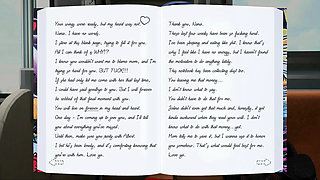 Your wingy were ready, but my heart was not.
Nana. I have no words.
I stare at this blank page, trying to fill it for you.
All I can think of is WHY??
I know you wouldn't want me to blame mom, and I'm
trying so hard for you. BUT FUCK!!!
If she had only let me come with her that last time,
I could have said goodbye to you. But I will forever
be robbed of that final moment with you.
You will live on forever in my head and heart.
One day - I'm coming up to you, and I'll tell
you about everything you've missed.
Until then, make sure you party with Albert.
I bet he's been lonely, and it's comforting knowing that
you're with him. Love ya.
Thank you, Nana.
These last four weeks have been so fucking hard.
I've been sleeping and eating like shit. I know that's
why I feel like I have no energy, but I haven't found
the motivation to do anything lately.
This notebook has been collecting dust too.
You leaving me that money...
I don't know what to say.
You didn't have to do that for me.
Jaime didn't even get that much and, honestly, it got
kinda awkward when they read your will. I don't
know what to do with that money... yet.
Mom tells me to save it, but I wanna use it to honor
you somehow. That's what would feel best for me.
Love ya.